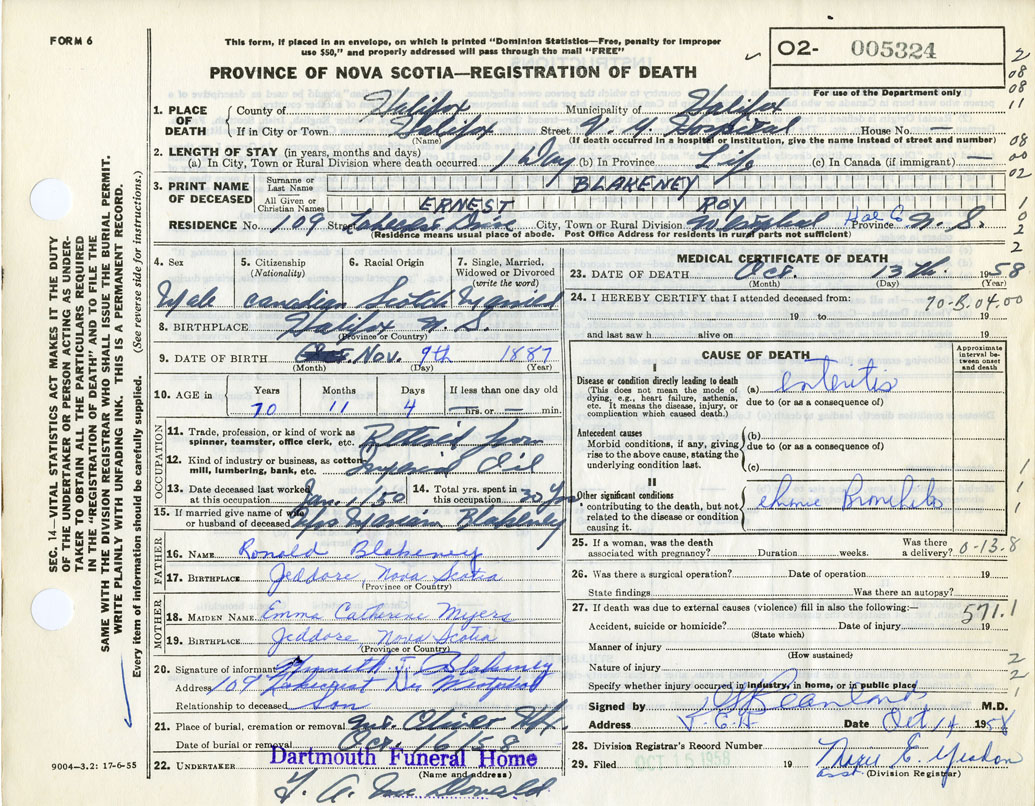 FORM 6
This form, if placed in an envelope, on which is printed "Dominion Statistics—Free, penalty for improper
use $50," and properly addressed will pass through the mail "FREE"
O2- 005324
For use of the Department only
PROVINCE OF NOVA SCOTIA—REGISTRATION OF DEATH
1. PLACE OF DEATH County of Halifax Municipality of Halifax
If in City or Town Halifax Street V. G. Hospital House No. —
(Name) (If death occurred in a hospital or institution, give the name instead of street and number)
2. LENGTH OF STAY (in years, months and days)
(a) In City, Town or Rural Division where death occurred 1 Day (b) In Province Life (c) In Canada (if immigrant) —
3. PRINT NAME OF DECEASED Surname or Last Name BLAKENEY
All Given or Christian Names ERNEST ROY
RESIDENCE No. 109 Street Lakecrest Drive City, Town or Rural Division Westphal Hal Co Province N. S.
(Residence means usual place of abode. Post Office Address for residents in rural parts not sufficient)
4. Sex Male
5. Citizenship (Nationality) Canadian
6. Racial Origin Scotch
7. Single, Married, Widowed or Divorced (write the word) Married
8. BIRTHPLACE Halifax N. S.
(Province or Country)
9. DATE OF BIRTH Nov. 9th 1887
(Month) (Day) (Year)
10. AGE in Years Months Days If less than one day old
70 11 4 — hrs. or — min.
OCCUPATION
11. Trade, profession, or kind of work as spinner, teamster, office clerk, etc. Retired from
12. Kind of industry or business, as cotton mill, lumbering, bank, etc. Imperial Oil
13. Date deceased last worked at this occupation Jan. 1/50 14. Total yrs. spent in this occupation 30 Yrs
15. If married give name of wife or husband of deceased Mrs Marian Blakeney
FATHER
16. NAME Ronald Blakeney
17. BIRTHPLACE Jeddore Nova Scotia
(Province or Country)
MOTHER
18. MAIDEN NAME Emma Catherine Myers
19. BIRTHPLACE Jeddore Nova Scotia
(Province or Country)
20. Signature of informant Kenneth J. Blakeney
Address 109 Lakecrest Dr. Westphal
Relationship to deceased Son
21. Place of burial, cremation or removal Mt. Olivet Hfx.
Date of burial or removal Oct. 16/58
Dartmouth Funeral Home
22. UNDERTAKER
(Name and address)
MEDICAL CERTIFICATE OF DEATH
23. DATE OF DEATH Oct. 13th. 1958
(Month) (Day) (Year)
24. I HEREBY CERTIFY that I attended deceased from: 70-B.04.00
19 to 19
and last saw h alive on 19
CAUSE OF DEATH
Approximate interval between onset and death
I
Disease or condition directly leading to death (a) enteritis
(This does not mean the mode of dying, e.g., heart failure, asthenia, etc. It means the disease, injury, or complication which caused death.)
due to (or as a consequence of)
Antecedent causes
Morbid conditions, if any, giving rise to the above cause, stating the underlying condition last.
(b)
due to (or as a consequence of)
(c)
II
Other significant conditions contributing to the death, but not related to the disease or condition causing it. chronic Bronchitis
25. If a woman, was the death associated with pregnancy? Duration weeks. Was there a delivery? 0-13.8
26. Was there a surgical operation? Date of operation 19
State findings Was there an autopsy?
27. If death was due to external causes (violence) fill in also the following:— 571.1
Accident, suicide or homicide? Date of injury 19
(State which)
Manner of injury
(How sustained)
Nature of injury
Specify whether injury occurred in industry, in home, or in public place
Signed by M.D.
Address Date Oct 14 1958
28. Division Registrar's Record Number
29. Filed OCT 1958 19
asst. (Division Registrar)
SEC. 14—VITAL STATISTICS ACT MAKES IT THE DUTY
OF THE UNDERTAKER OR PERSON ACTING AS UNDER-
TAKER TO OBTAIN ALL THE PARTICULARS REQUIRED
IN THE "REGISTRATION OF DEATH" AND TO FILE THE
SAME WITH THE DIVISION REGISTRAR WHO SHALL ISSUE THE BURIAL PERMIT.
WRITE PLAINLY WITH UNFADING INK. THIS IS A PERMANENT RECORD.
Every item of information should be carefully supplied. (See reverse side for instructions.)
9004—3.2: 17-6-55